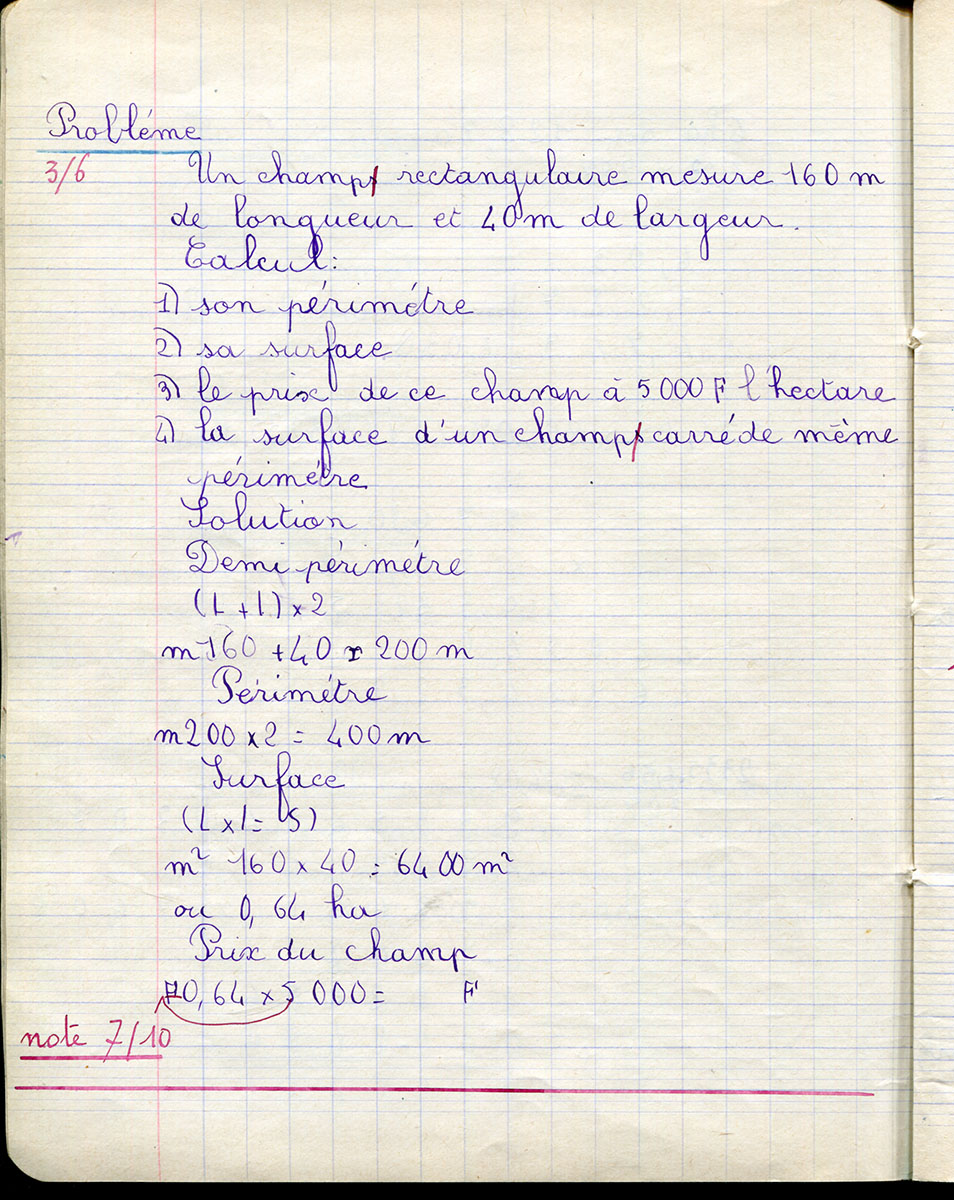 Probléme
3/6
Un champs rectangulaire mesure 160 m
de longueur et 40 m de largeur.
Calcul:
1) son périmétre
2) sa surface
3) le prix de ce champ à 5 000 F l'hectare
4) la surface d'un champs carré de même
périmétre
Solution
Demi périmétre
(L + l) × 2
m 160 + 40 = 200 m
Périmétre
m 200 × 2 = 400 m
Surface
(L × l = S)
m² 160 × 40 = 6400 m²
ou 0,64 ha
Prix du champ
F 0,64 × 5 000 = F
note 7/10